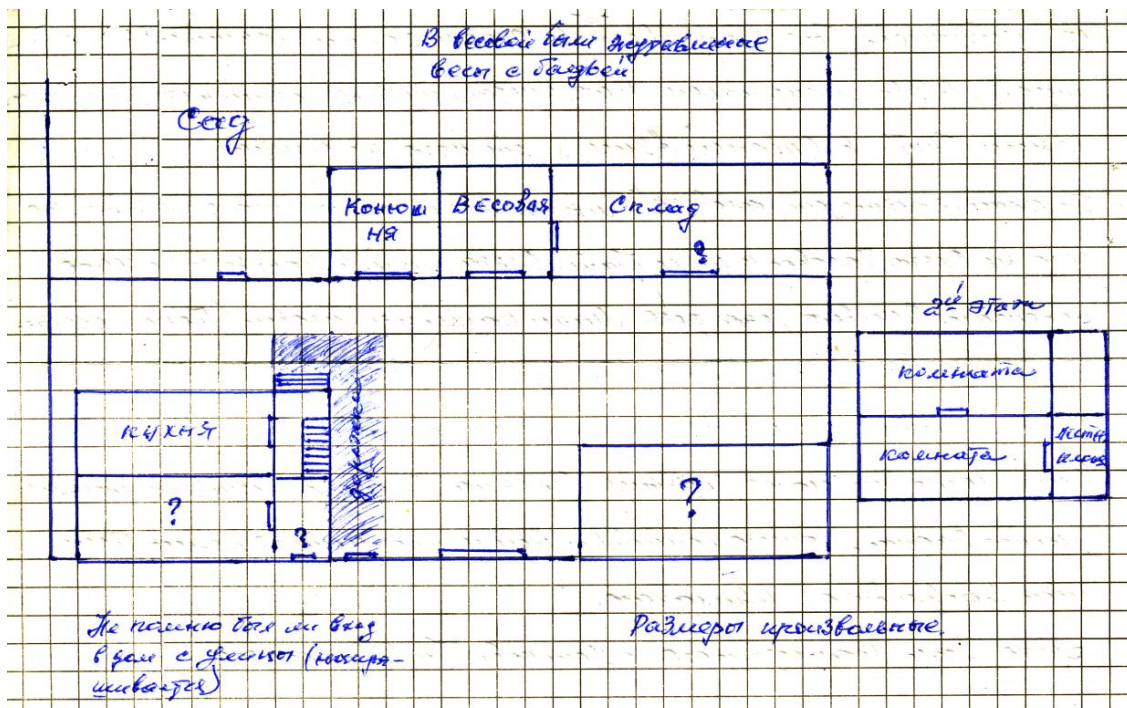 В весовой были журавлиные
весы с бадьёй
Сад
Конюш
ня
Весовая
Склад
?
2й этаж
комната
комната
лестн.
клад
кухня
дорожки
?
?
?
Не помню был ли вход
в дом с улицы (напра-
шивается)
Размеры произвольные.